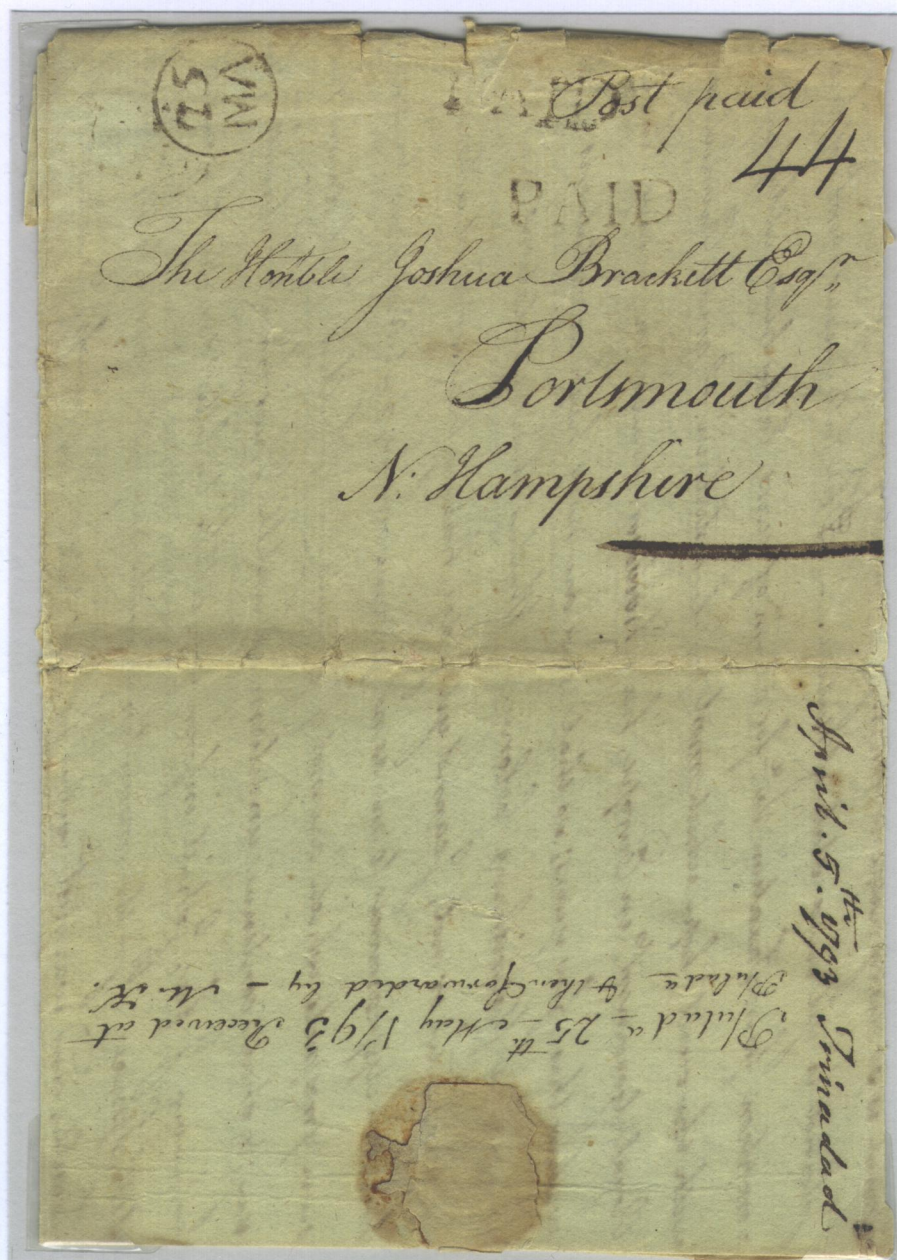 25
MA
PAID
Post paid
44
PAID
The Honble Joshua Brackett Esqr
Portsmouth
N. Hampshire
April. 5th. 1793 Trinadad
Philada 25th May 1793 Received at
Philada & then forwarded by —